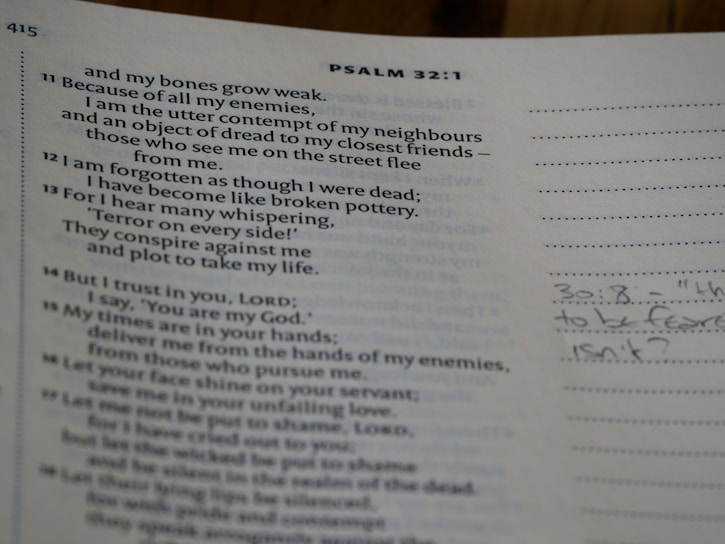 415
PSALM 32:1
and my bones grow weak.
11 Because of all my enemies,
I am the utter contempt of my neighbours
and an object of dread to my closest friends –
those who see me on the street flee
from me.
12 I am forgotten as though I were dead;
I have become like broken pottery.
13 For I hear many whispering,
‘Terror on every side!’
They conspire against me
and plot to take my life.
14 But I trust in you, LORD;
I say, ‘You are my God.’
15 My times are in your hands;
deliver me from the hands of my enemies,
from those who pursue me.
16 Let your face shine on your servant;
save me in your unfailing love.
17 Let me not be put to shame, LORD,
for I have cried out to you;
but let the wicked be put to shame
and be silent in the realm of the dead.
18 Let their lying lips be silenced,
for with pride and contempt
they speak arrogantly against the
30:8 – "th
to be feare
isn't?